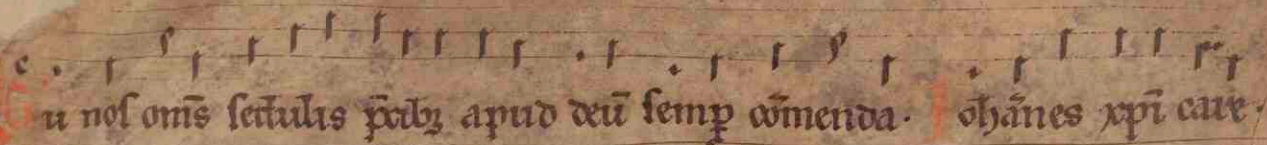 Tu nos om̄s sedulis p̄cibꝫ apud deū semꝑ cōmenda. Ioh̄annes xp̄i care.